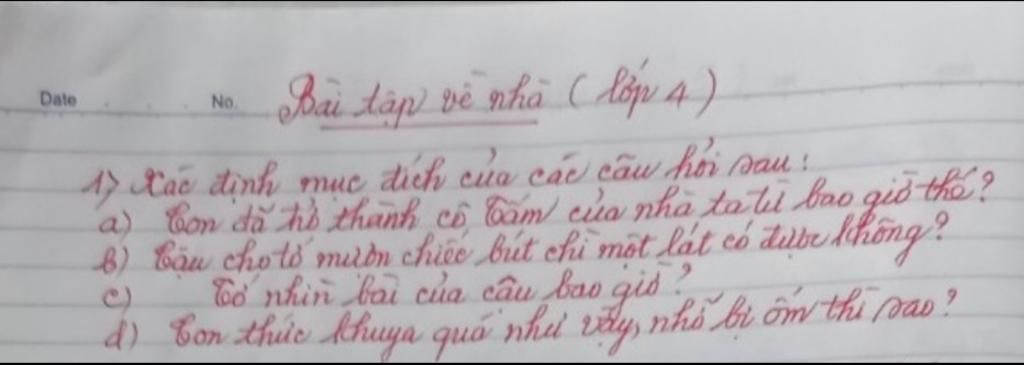 Date No. Bài tập về nhà (lớp 4)
1) Xác định mục đích của các câu hỏi sau:
a) Con đã trở thành cô Tấm của nhà ta từ bao giờ thế?
b) Cậu cho tớ mượn chiếc bút chì một lát có được không?
c) Tớ nhìn bài của cậu bao giờ?
d) Con thức khuya quá như vậy, nhỡ bị ốm thì sao?